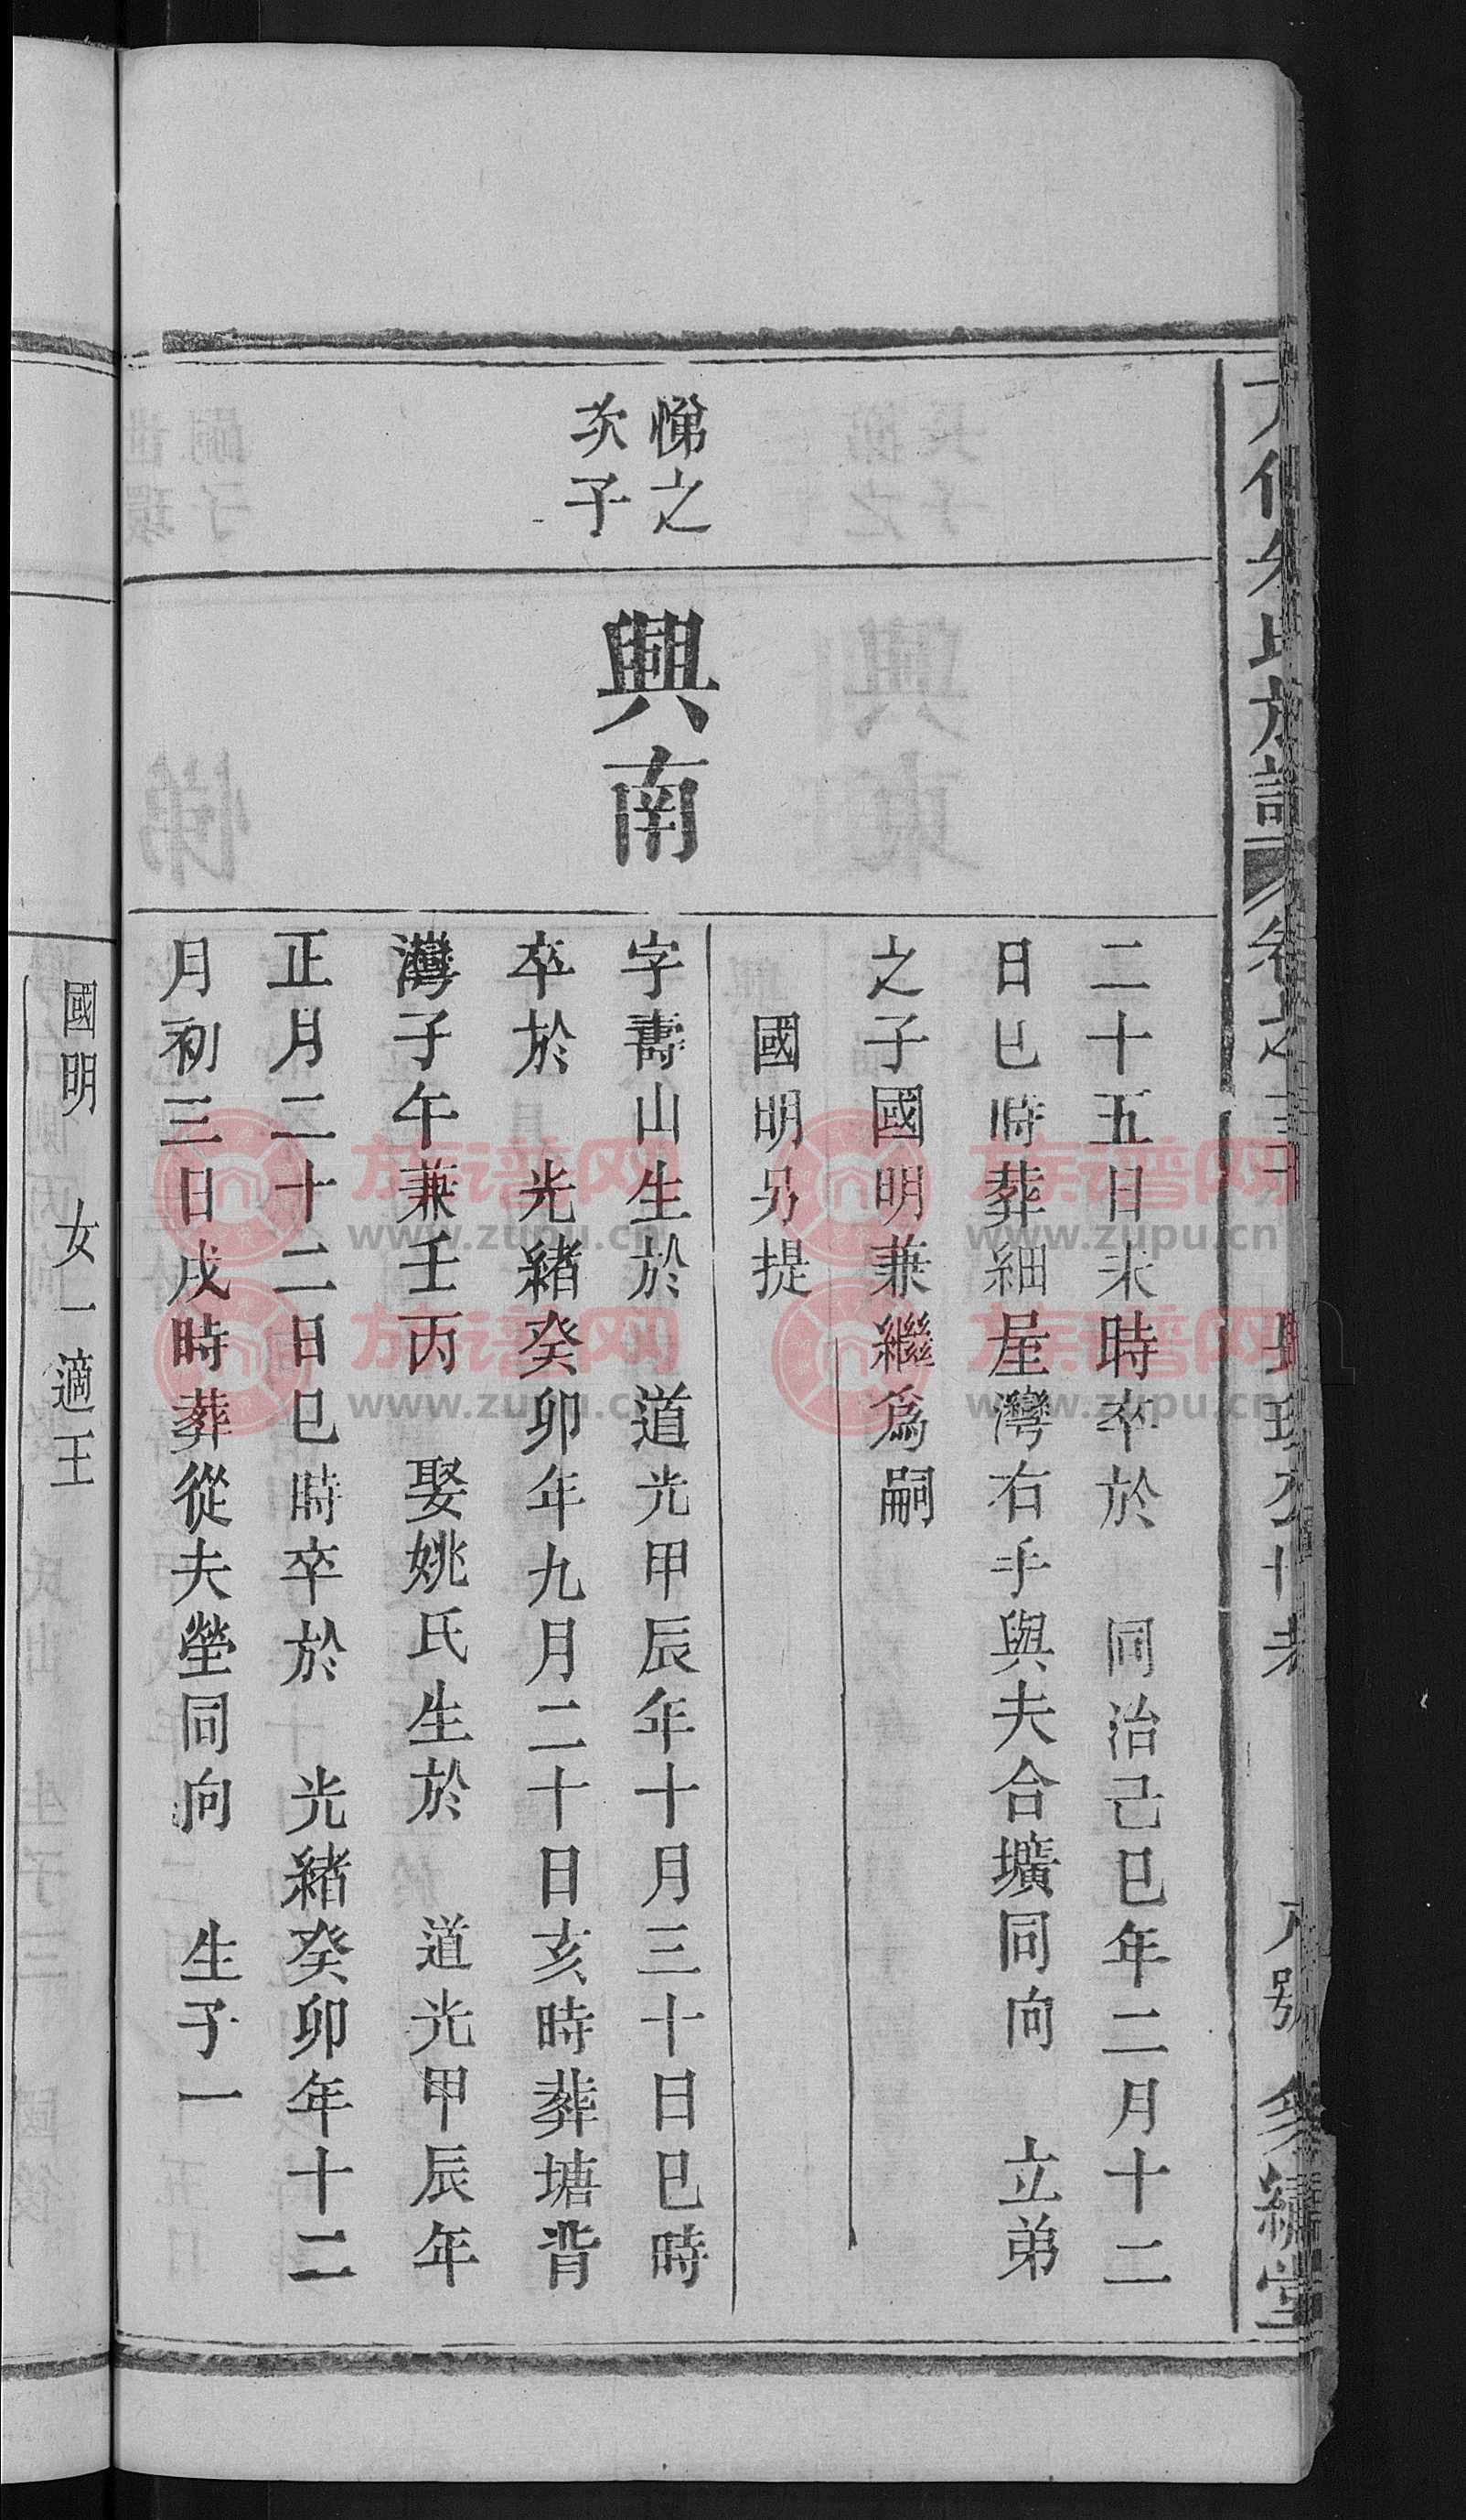 二十五日未時卒於　同治己巳年二月十二
日巳時葬細屋灣右手與夫合壙同向　立弟
之子國明兼繼爲嗣
國明另提
悌之
次子
興南
字壽山生於　道光甲辰年十月三十日巳時
卒於　光緒癸卯年九月二十日亥時葬塘背
灣子午兼壬丙　娶姚氏生於　道光甲辰年
正月二十二日巳時卒於　光緒癸卯年十二
月初三日戌時葬從夫塋同向　生子一
國明　女一適王
族谱网
www.zupu.cn
族谱网
www.zupu.cn
族谱网
www.zupu.cn
族谱网
www.zupu.cn